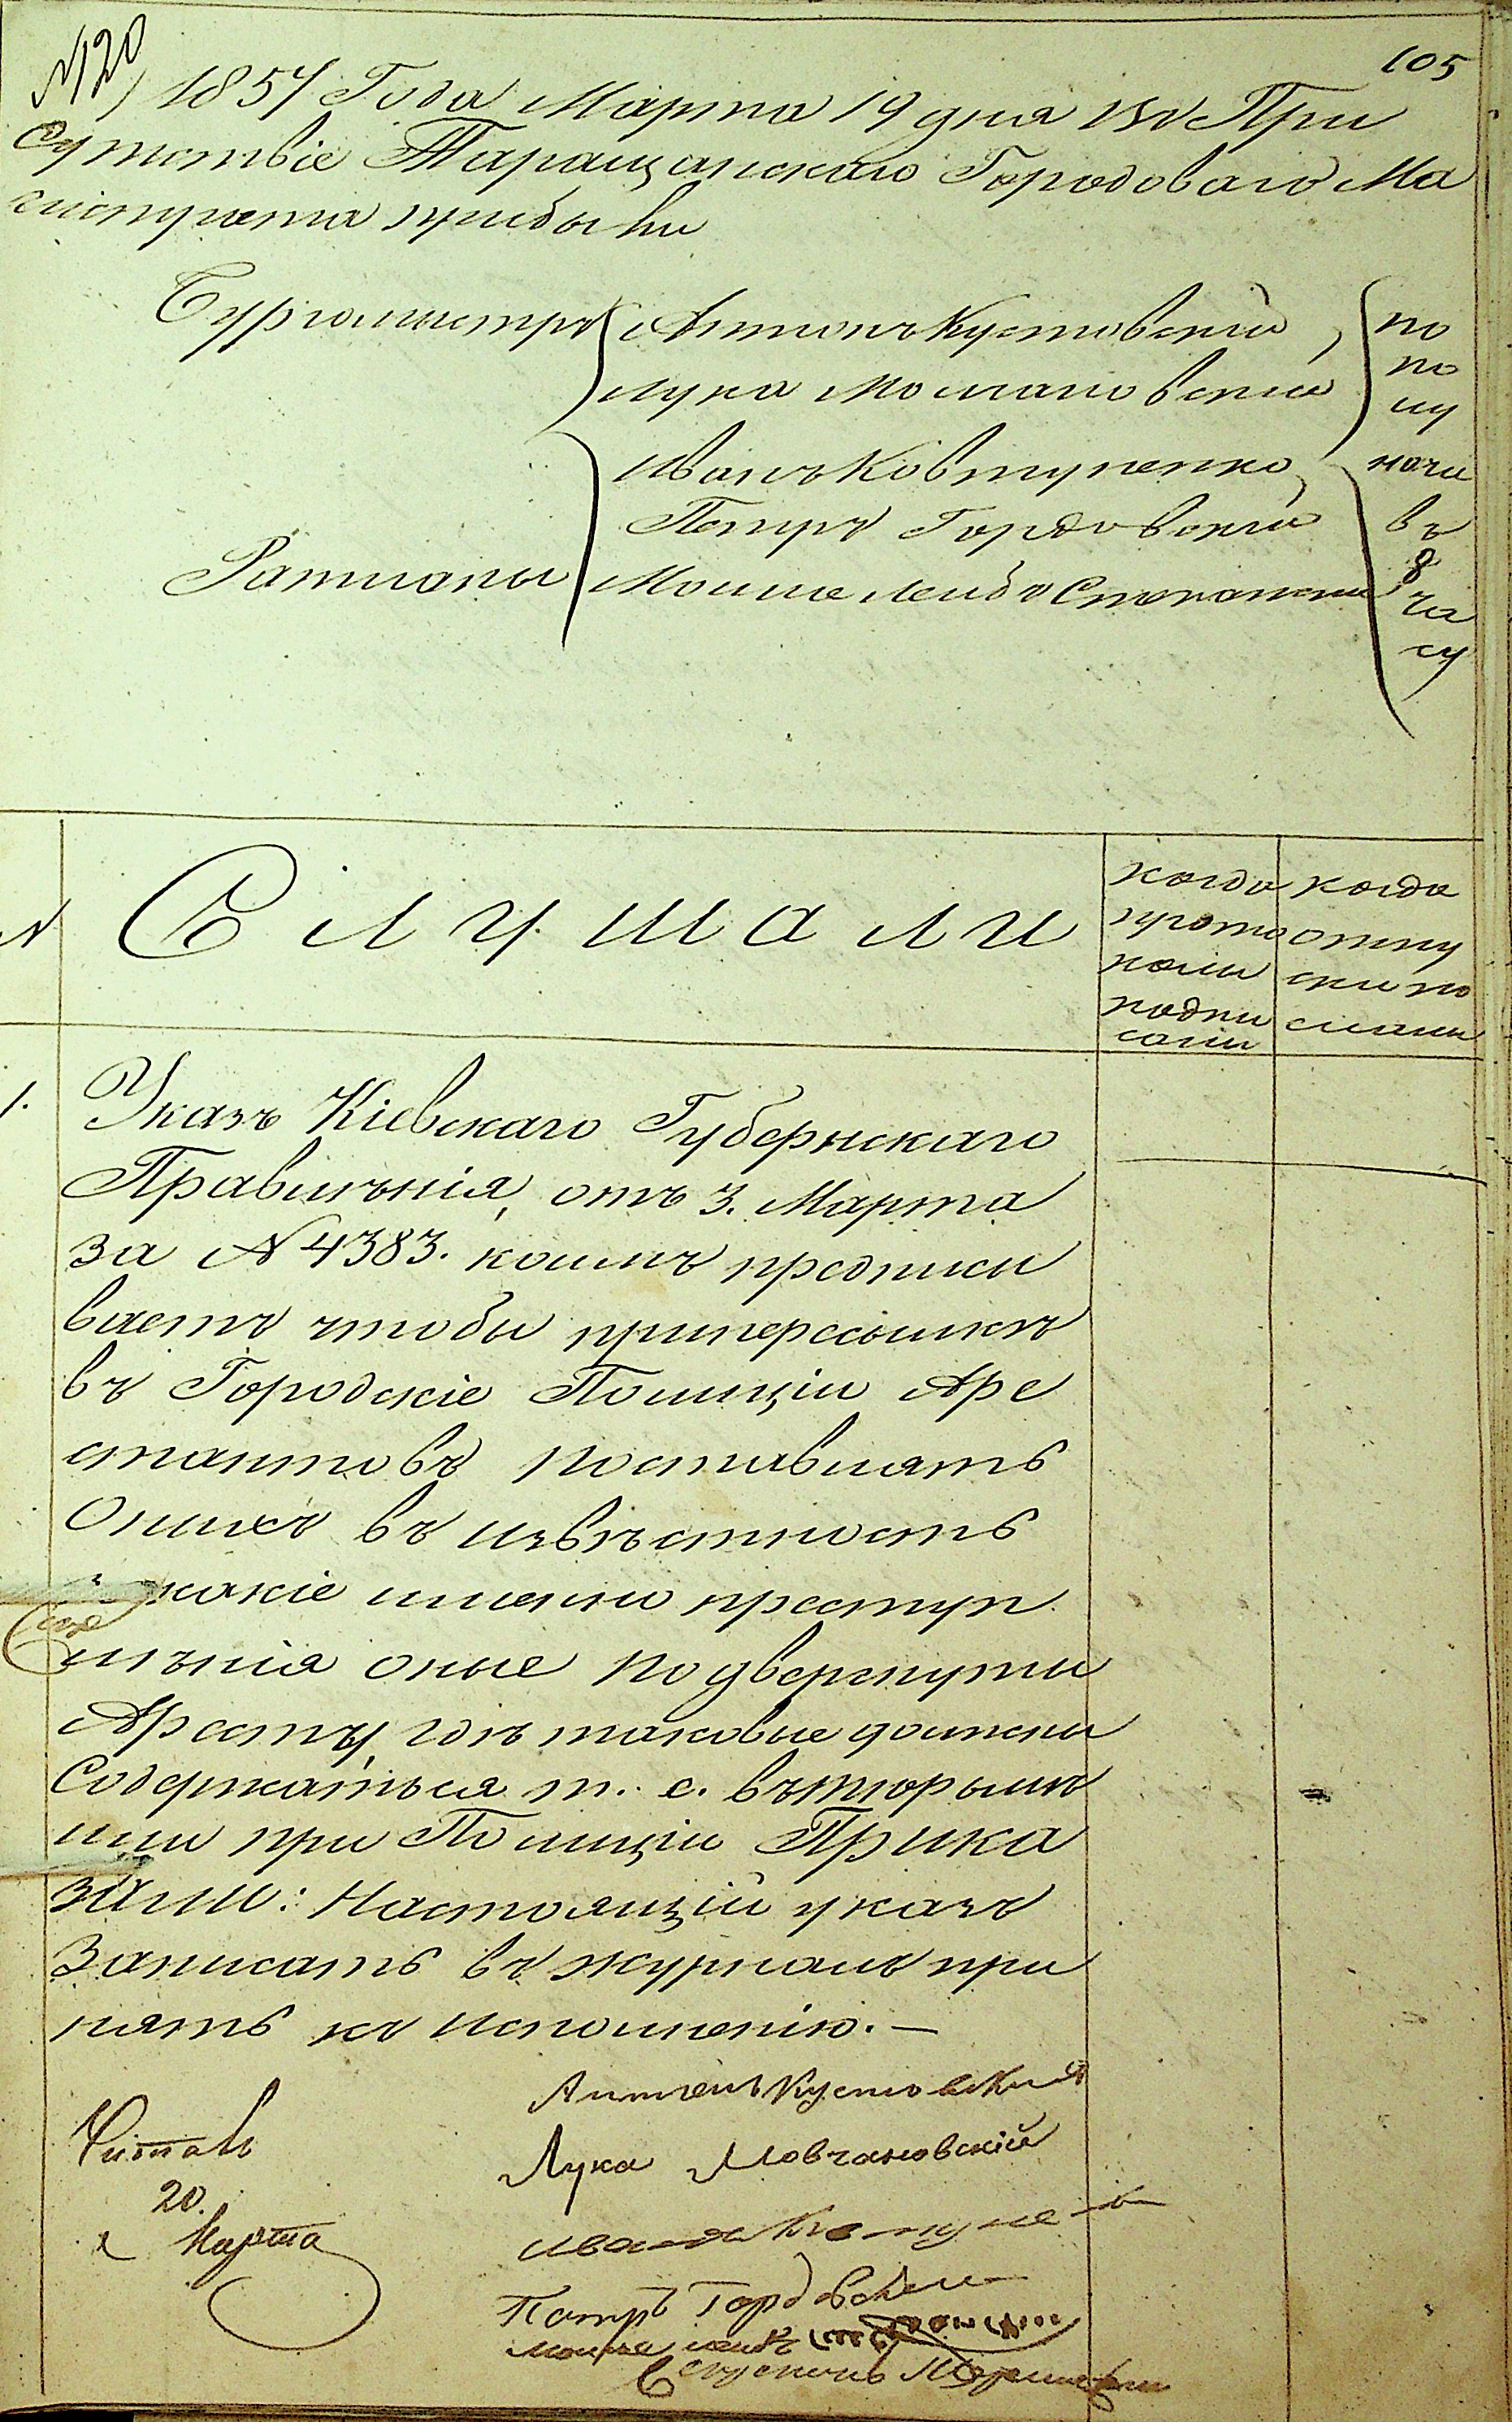 №120
105
1857 Года Марта 19 дня въ При
сутствіе Таращанскаго Городоваго Ма
гистрата прибыли
Бургомистры
Антонъ Кустовскій
Лука Молчановскій
Иванъ Ковтуненко
Петръ Гордовскій
Ратманы
Мошке Лейба
по
по
лу
ночи
въ
8
ча
су
№
Слушали
когда
прото
колы
подпи
саны
когда
отпу
ски по
сланы
1.
Указъ Кіевскаго Губернскаго
Правлѣнія, отъ 3. Марта
за №4383. коимъ предписы
ваетъ чтобы припересылкѣ
въ Городскіе Полиціи Аре
стантовъ поставлять
Оныхъ въ извѣстность
какіе именно преступ
лѣнія оные подвергнуты
Аресту, гдѣ таковые должны
Содержаться т. е. въ тюрьмѣ
или при Полиціи Прика
зали: Настоящій указъ
Записать въ журналъ при
нять къ исполненію. —
Антонъ Кустовскій
Читалъ
Лука Мовчановскій
20.
Марта
Иванъ
Петръ Гордовскій
Мошке Лейба